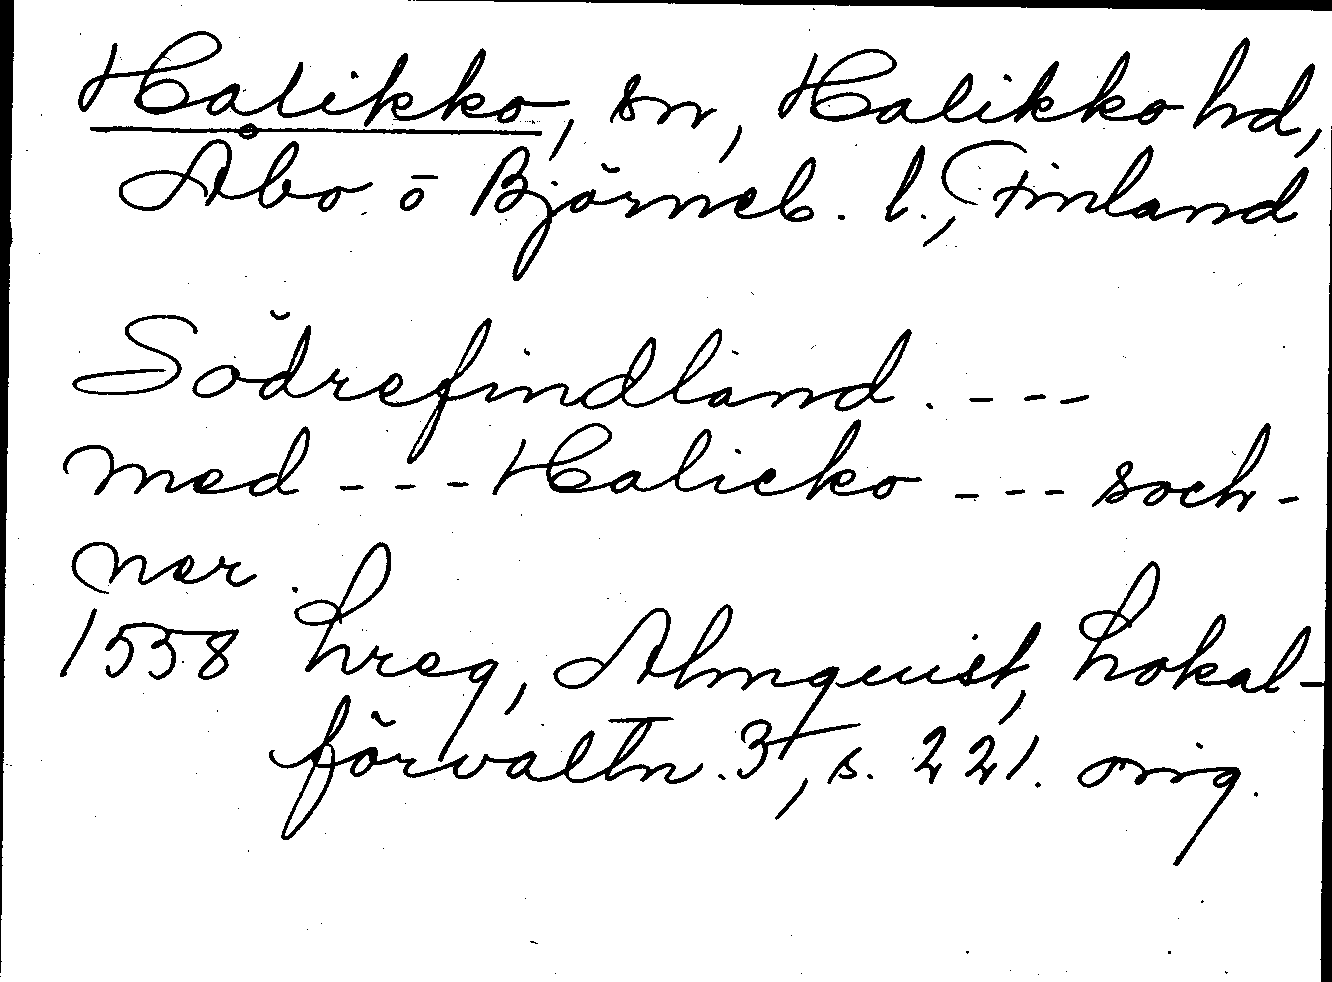 Halikko, sn, Halikko hd,
Åbo o Björneb. l., Finland
Södrefindland. - - -
med - - - Halicko - - - soch-
ner.
1558 Lreg, Almquist, Lokal-
förvaltn. 3, s. 221. orig.